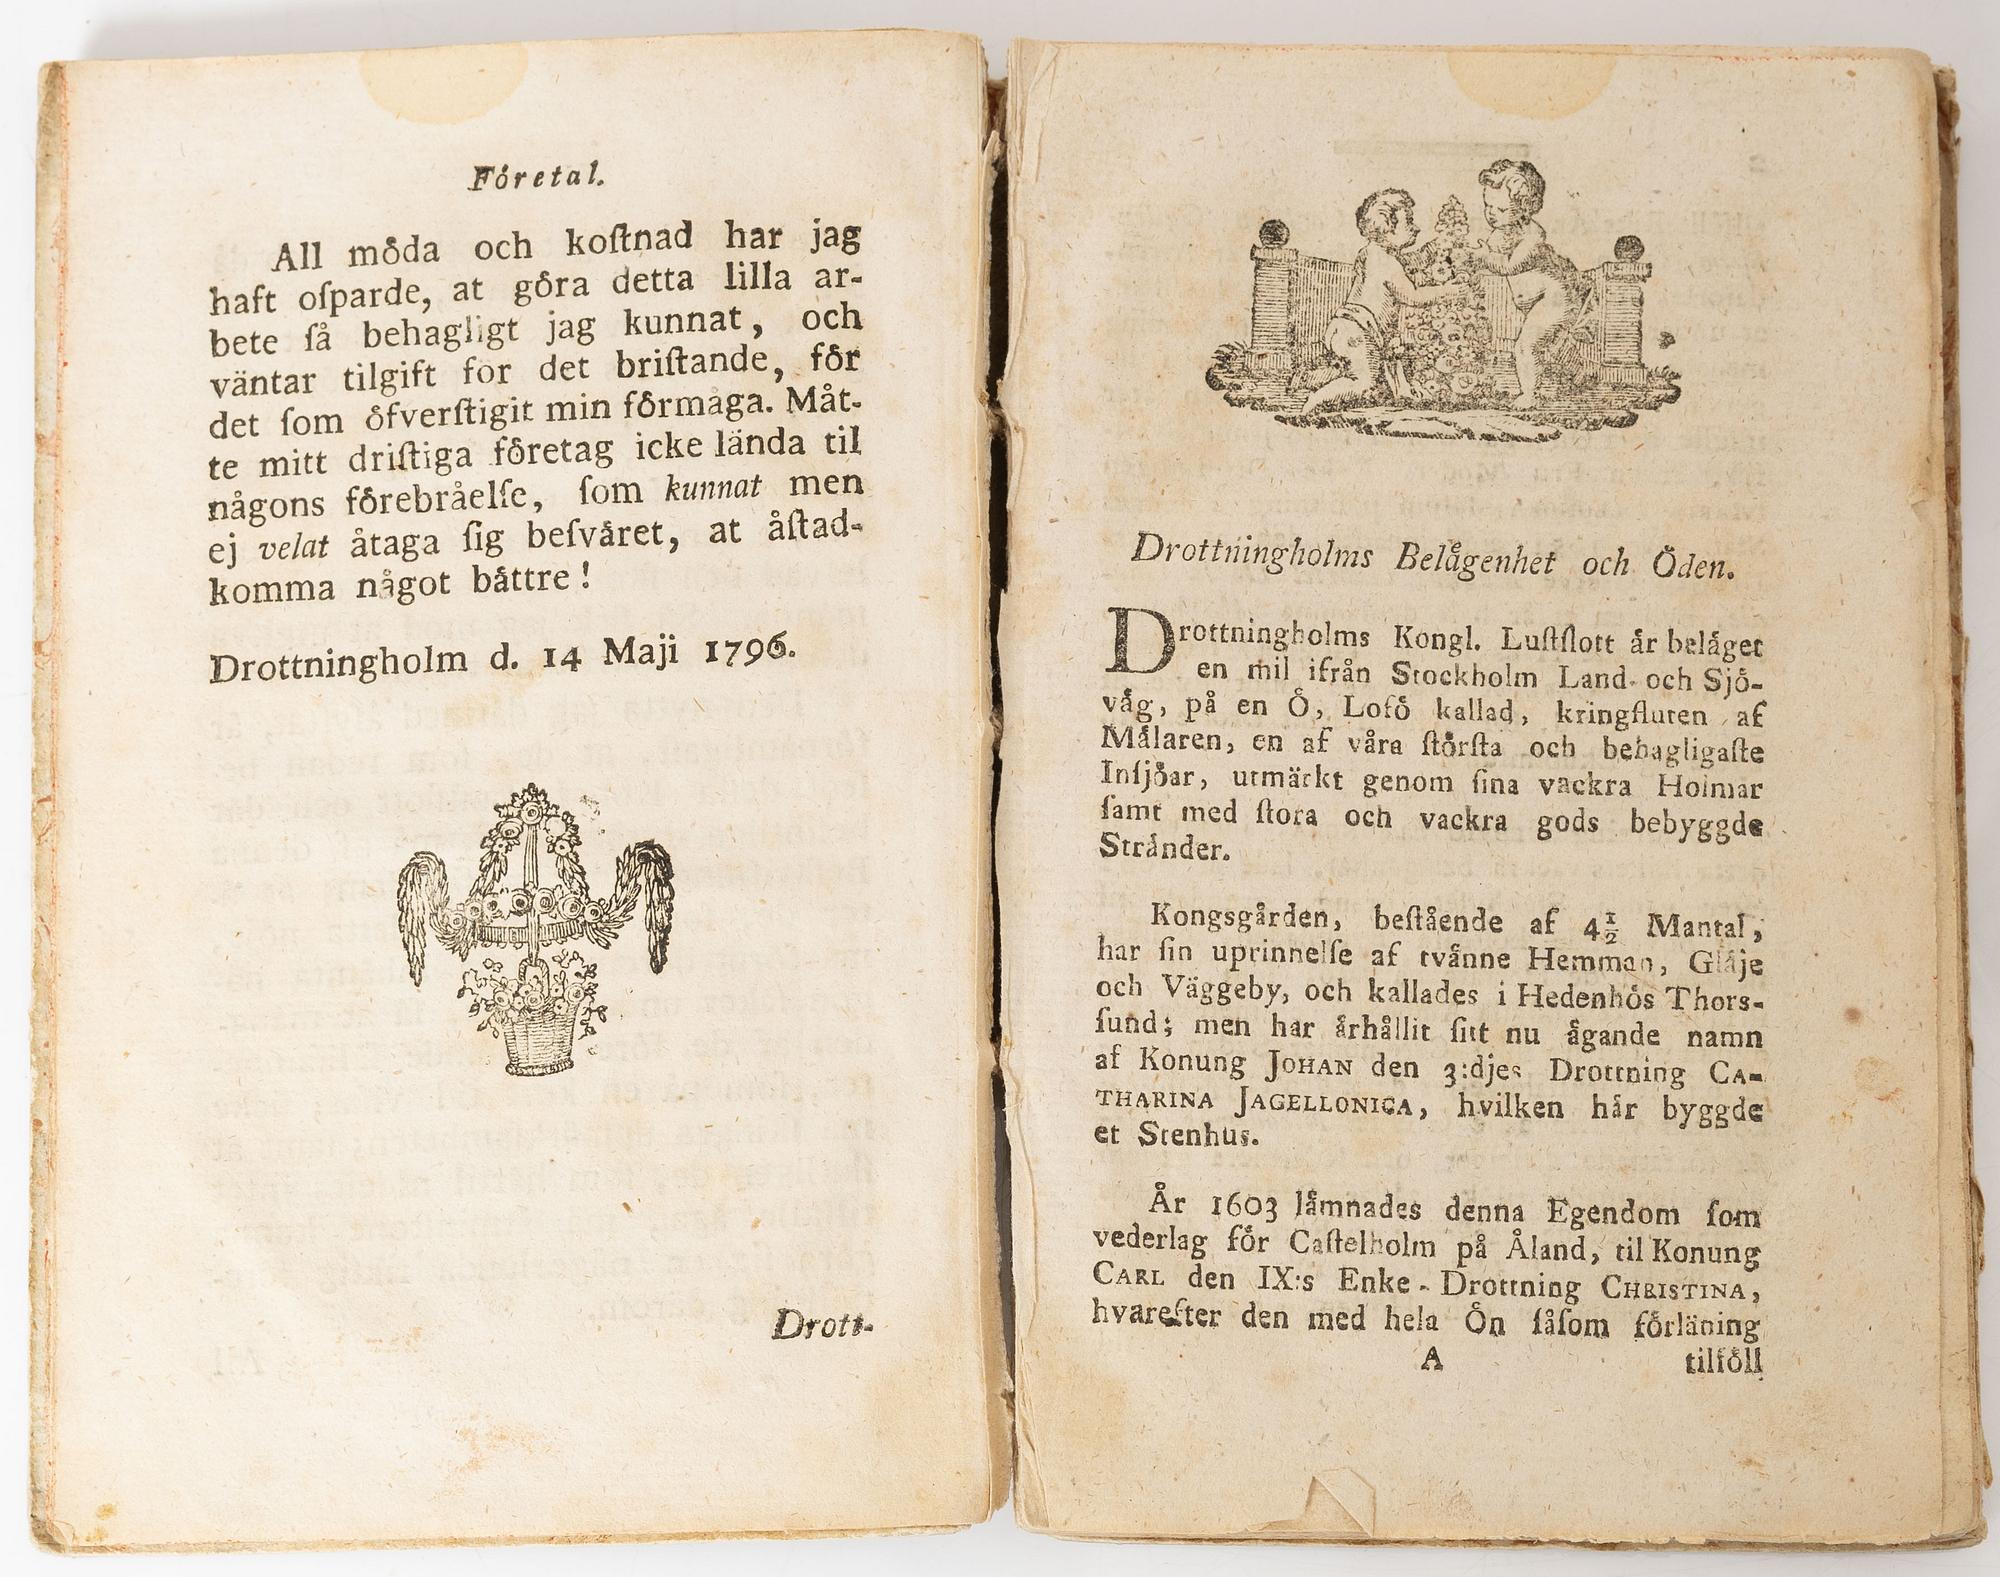 Företal.
All möda och koſtnad har jag
haft oſparde, at göra detta lilla ar-
bete ſå behagligt jag kunnat, och
väntar tilgift for det briſtande, för
det ſom öfverſtigit min förmåga. Måt-
te mitt driſtiga företag icke lända til
någons förebråelſe, ſom kunnat men
ej velat åtaga ſig beſväret, at åſtad-
komma något bättre!
Drottningholm d. 14 Maji 1796.
Drott-
Drottningholms Belägenhet och Öden.
Drottningholms Kongl. Luſtſlott är beläget
en mil ifrån Stockholm Land- och Sjö-
väg, på en Ö, Lofö kallad, kringfluten af
Mälaren, en af våra ſtörſta och behagligaſte
Inſjöar, utmärkt genom ſina vackra Holmar
ſamt med ſtora och vackra gods bebyggde
Stränder.
Kongsgården, beſtående af 4½ Mantal,
har ſin uprinnelſe af tvänne Hemman, Gläje
och Väggeby, och kallades i Hedenhös Thors-
ſund; men har ärhållit ſitt nu ägande namn
af Konung JOHAN den 3:djes Drottning CA-
THARINA JAGELLONICA, hvilken här byggde
et Stenhus.
År 1603 lämnades denna Egendom ſom
vederlag för Caſtelholm på Åland, til Konung
CARL den IX:s Enke-Drottning CHRISTINA,
hvarefter den med hela Ön ſåſom förläning
A tilföll